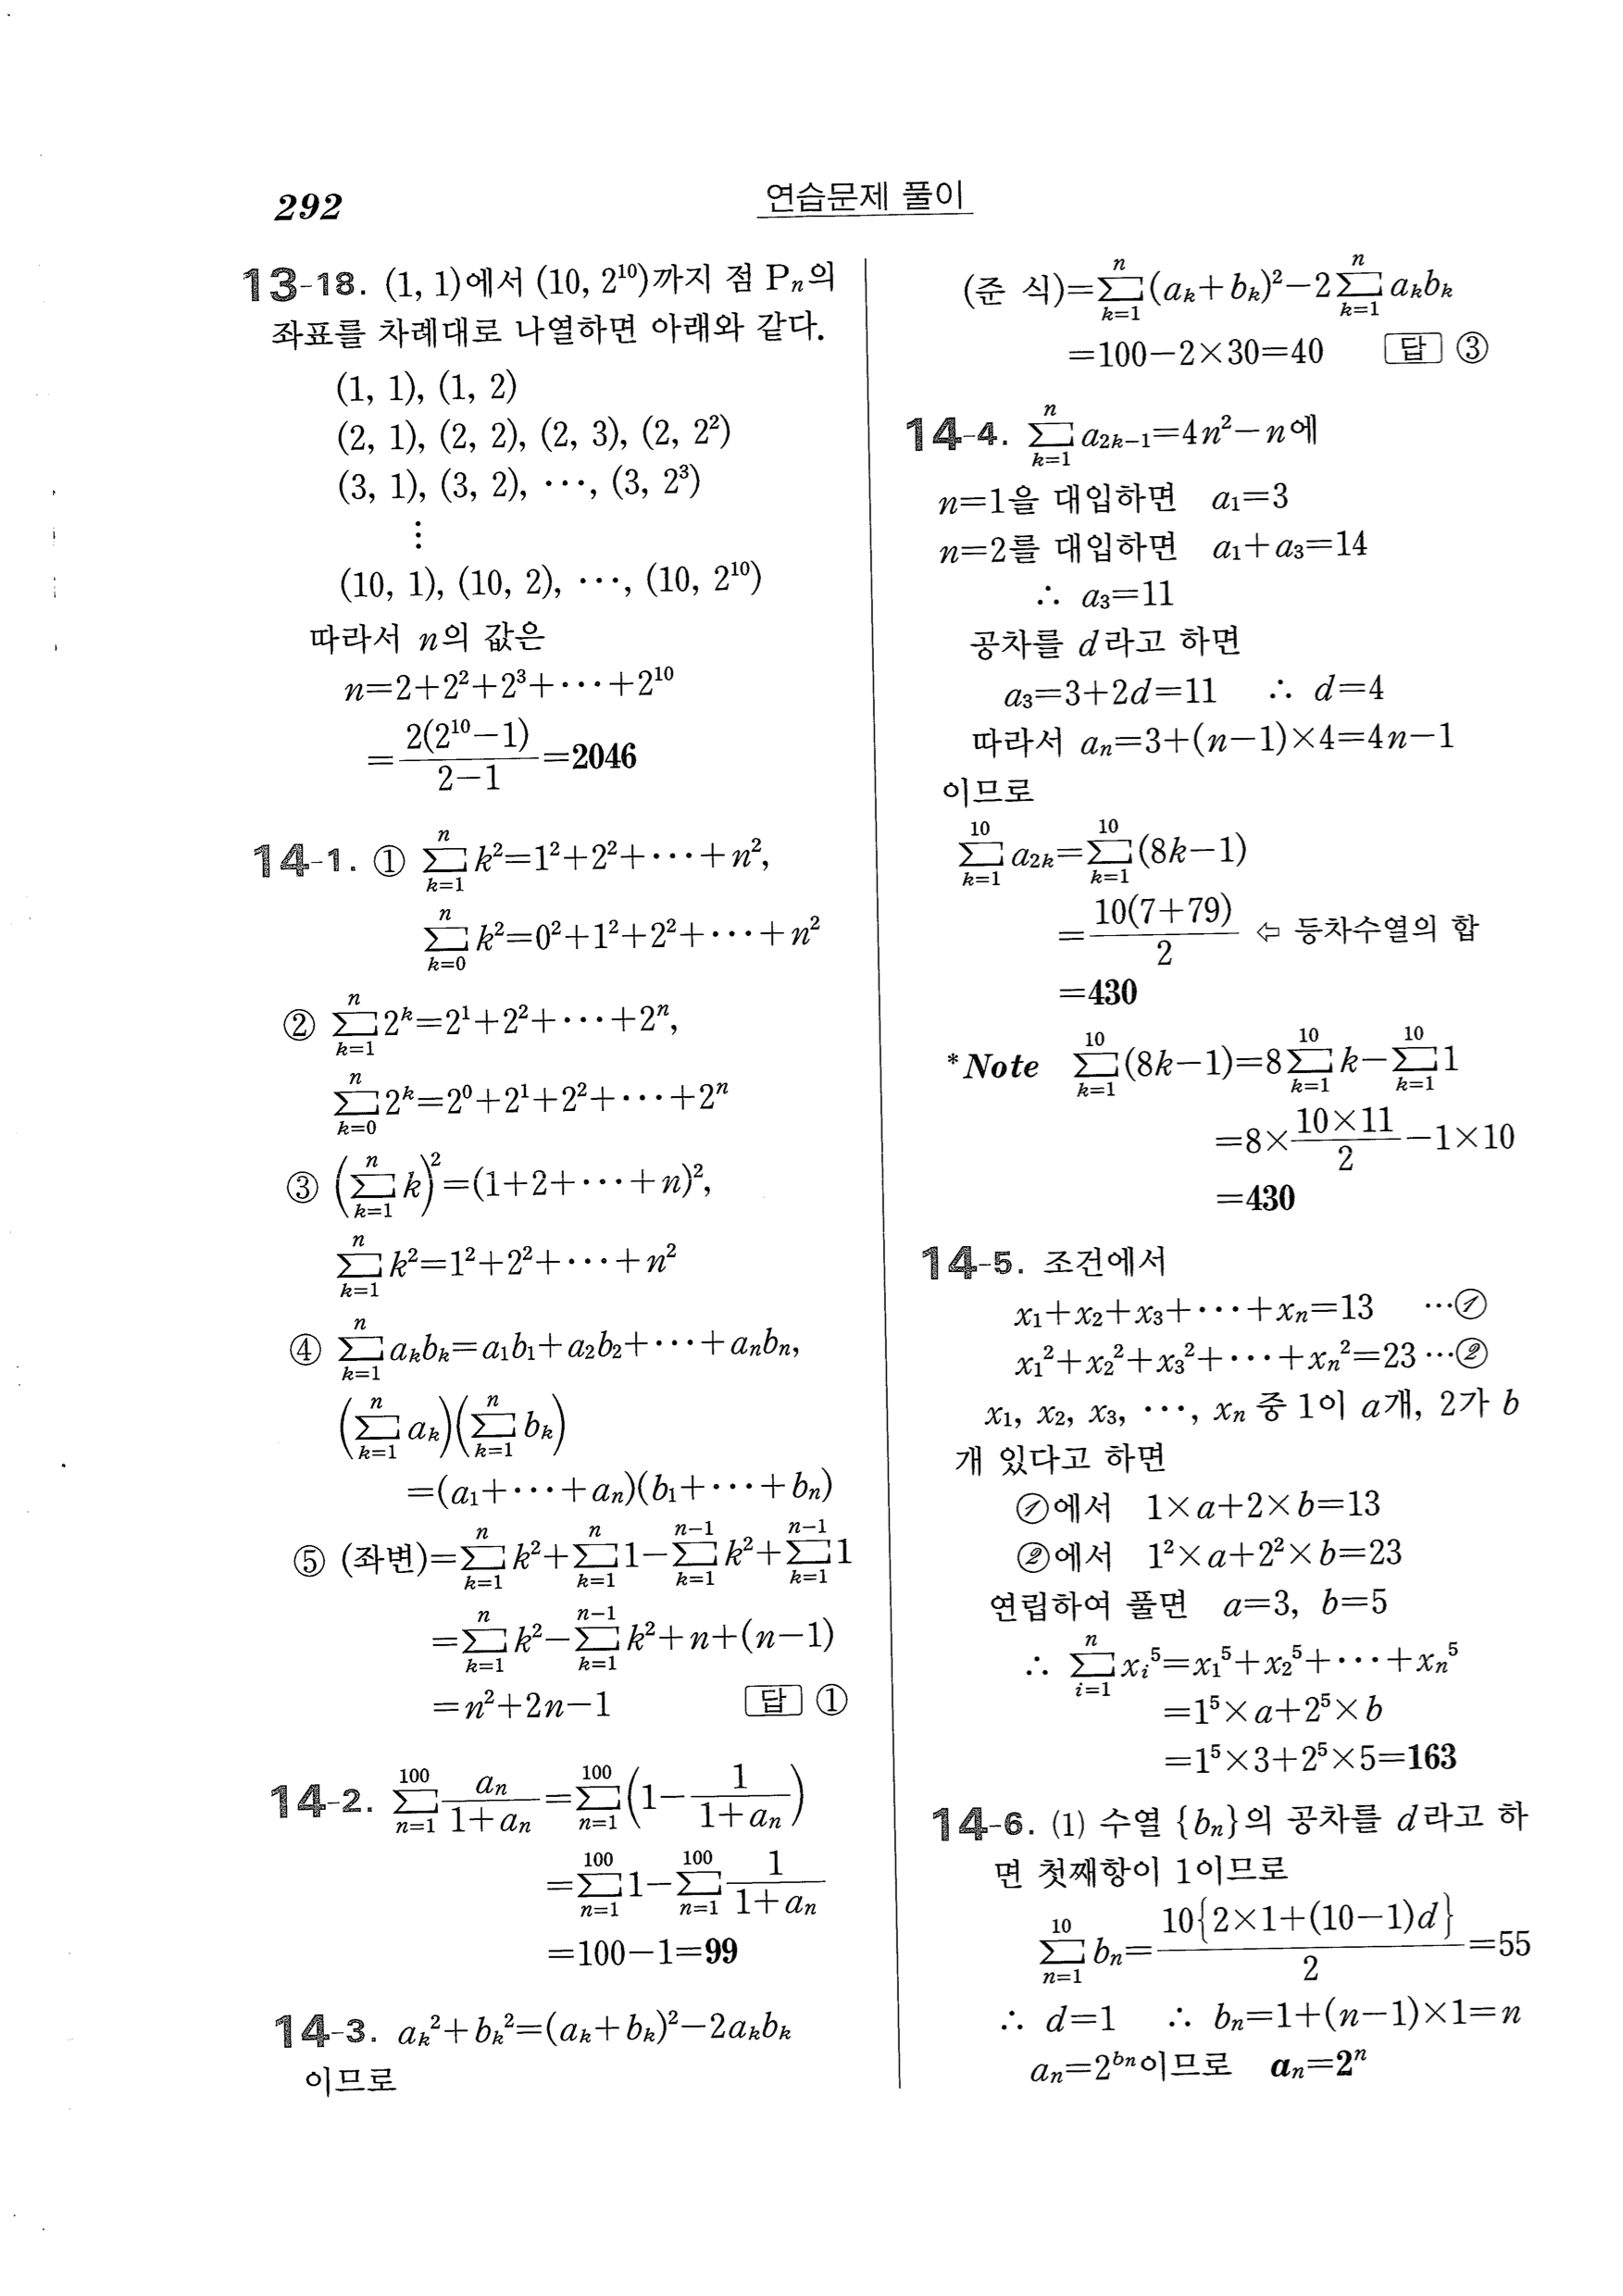 292
연습문제 풀이
13-18. (1, 1)에서 (10, 2¹⁰)까지 점 Pₙ의
좌표를 차례대로 나열하면 아래와 같다.
(1, 1), (1, 2)
(2, 1), (2, 2), (2, 3), (2, 2²)
(3, 1), (3, 2), ⋯, (3, 2³)
⋮
(10, 1), (10, 2), ⋯, (10, 2¹⁰)
따라서 n의 값은
n=2+2²+2³+⋯+2¹⁰
=\frac{2(2¹⁰-1)}{2-1}=2046
14-1. ① \sum_{k=1}^{n} k²=1²+2²+⋯+n²,
\sum_{k=0}^{n} k²=0²+1²+2²+⋯+n²
② \sum_{k=1}^{n} 2^k=2¹+2²+⋯+2ⁿ,
\sum_{k=0}^{n} 2^k=2⁰+2¹+2²+⋯+2ⁿ
③ (\sum_{k=1}^{n} k)²=(1+2+⋯+n)²,
\sum_{k=1}^{n} k²=1²+2²+⋯+n²
④ \sum_{k=1}^{n} a_k b_k=a₁b₁+a₂b₂+⋯+aₙbₙ,
(\sum_{k=1}^{n} a_k)(\sum_{k=1}^{n} b_k)
=(a₁+⋯+aₙ)(b₁+⋯+bₙ)
⑤ (좌변)=\sum_{k=1}^{n} k²+\sum_{k=1}^{n} 1-\sum_{k=1}^{n-1} k²+\sum_{k=1}^{n-1} 1
=\sum_{k=1}^{n} k²-\sum_{k=1}^{n-1} k²+n+(n-1)
=n²+2n-1 답 ①
14-2. \sum_{n=1}^{100} \frac{aₙ}{1+aₙ}=\sum_{n=1}^{100} (1-\frac{1}{1+aₙ})
=\sum_{n=1}^{100} 1-\sum_{n=1}^{100} \frac{1}{1+aₙ}
=100-1=99
14-3. a_k²+b_k²=(a_k+b_k)²-2a_k b_k
이므로
(준 식)=\sum_{k=1}^{n} (a_k+b_k)²-2\sum_{k=1}^{n} a_k b_k
=100-2×30=40 답 ③
14-4. \sum_{k=1}^{n} a_{2k-1}=4n²-n에
n=1을 대입하면 a₁=3
n=2를 대입하면 a₁+a₃=14
∴ a₃=11
공차를 d라고 하면
a₃=3+2d=11 ∴ d=4
따라서 aₙ=3+(n-1)×4=4n-1
이므로
\sum_{k=1}^{10} a_{2k}=\sum_{k=1}^{10} (8k-1)
=\frac{10(7+79)}{2} ⇦ 등차수열의 합
=430
*Note \sum_{k=1}^{10} (8k-1)=8\sum_{k=1}^{10} k-\sum_{k=1}^{10} 1
=8×\frac{10×11}{2}-1×10
=430
14-5. 조건에서
x₁+x₂+x₃+⋯+xₙ=13 ⋯①
x₁²+x₂²+x₃²+⋯+xₙ²=23 ⋯②
x₁, x₂, x₃, ⋯, xₙ 중 1이 a개, 2가 b
개 있다고 하면
①에서 1×a+2×b=13
②에서 1²×a+2²×b=23
연립하여 풀면 a=3, b=5
∴ \sum_{i=1}^{n} x_i⁵=x₁⁵+x₂⁵+⋯+xₙ⁵
=1⁵×a+2⁵×b
=1⁵×3+2⁵×5=163
14-6. (1) 수열 {bₙ}의 공차를 d라고 하
면 첫째항이 1이므로
\sum_{n=1}^{10} bₙ=\frac{10{2×1+(10-1)d}}{2}=55
∴ d=1 ∴ bₙ=1+(n-1)×1=n
aₙ=2^{bₙ}이므로 aₙ=2ⁿ